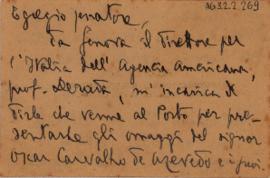 Egregio senatore,
AG3.2.2.269
Da Genova il Direttore per
l'Italia dell'Agencia Americana,
prof. m'incarica di
dirle che venne al Porto per pre-
sentarle gli omaggi del signor
Oscar Carvalho de Azevedo e i suoi.